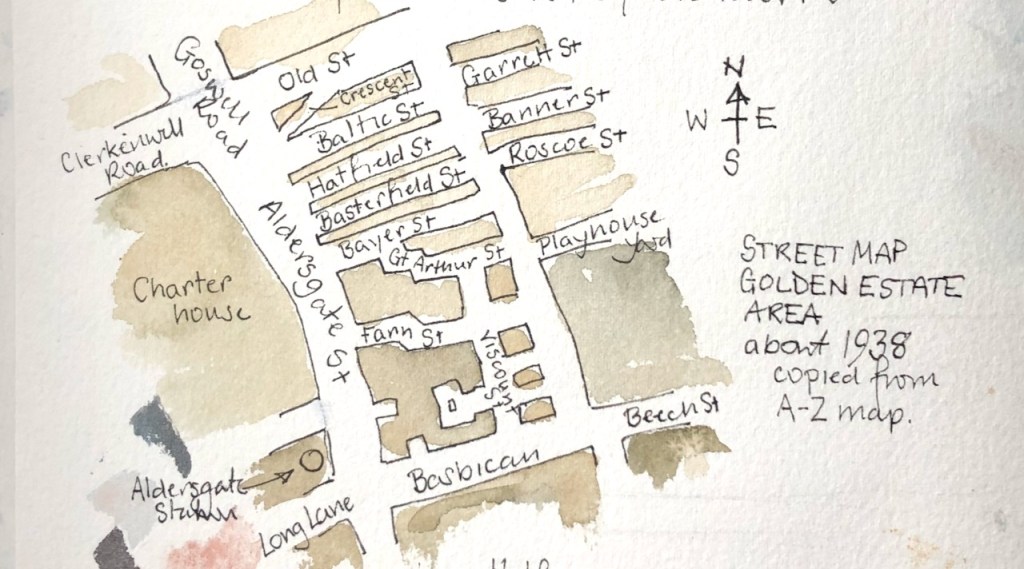 Goswell
Road
Old St
Crescent
St
Baltic St
Hatfield St
Basterfield St
Bayer St
Gt Arthur St
Garrett St
Banner St
Roscoe St
Playhouse
Yard
N
W E
S
Clerkenwell
Road.
Aldersgate St
Charter
house
Fann St
Viscount
St
STREET MAP
GOLDEN ESTATE
AREA
about 1938
copied from
A-Z map.
Beech St
Barbican
Aldersgate
Station
Long Lane